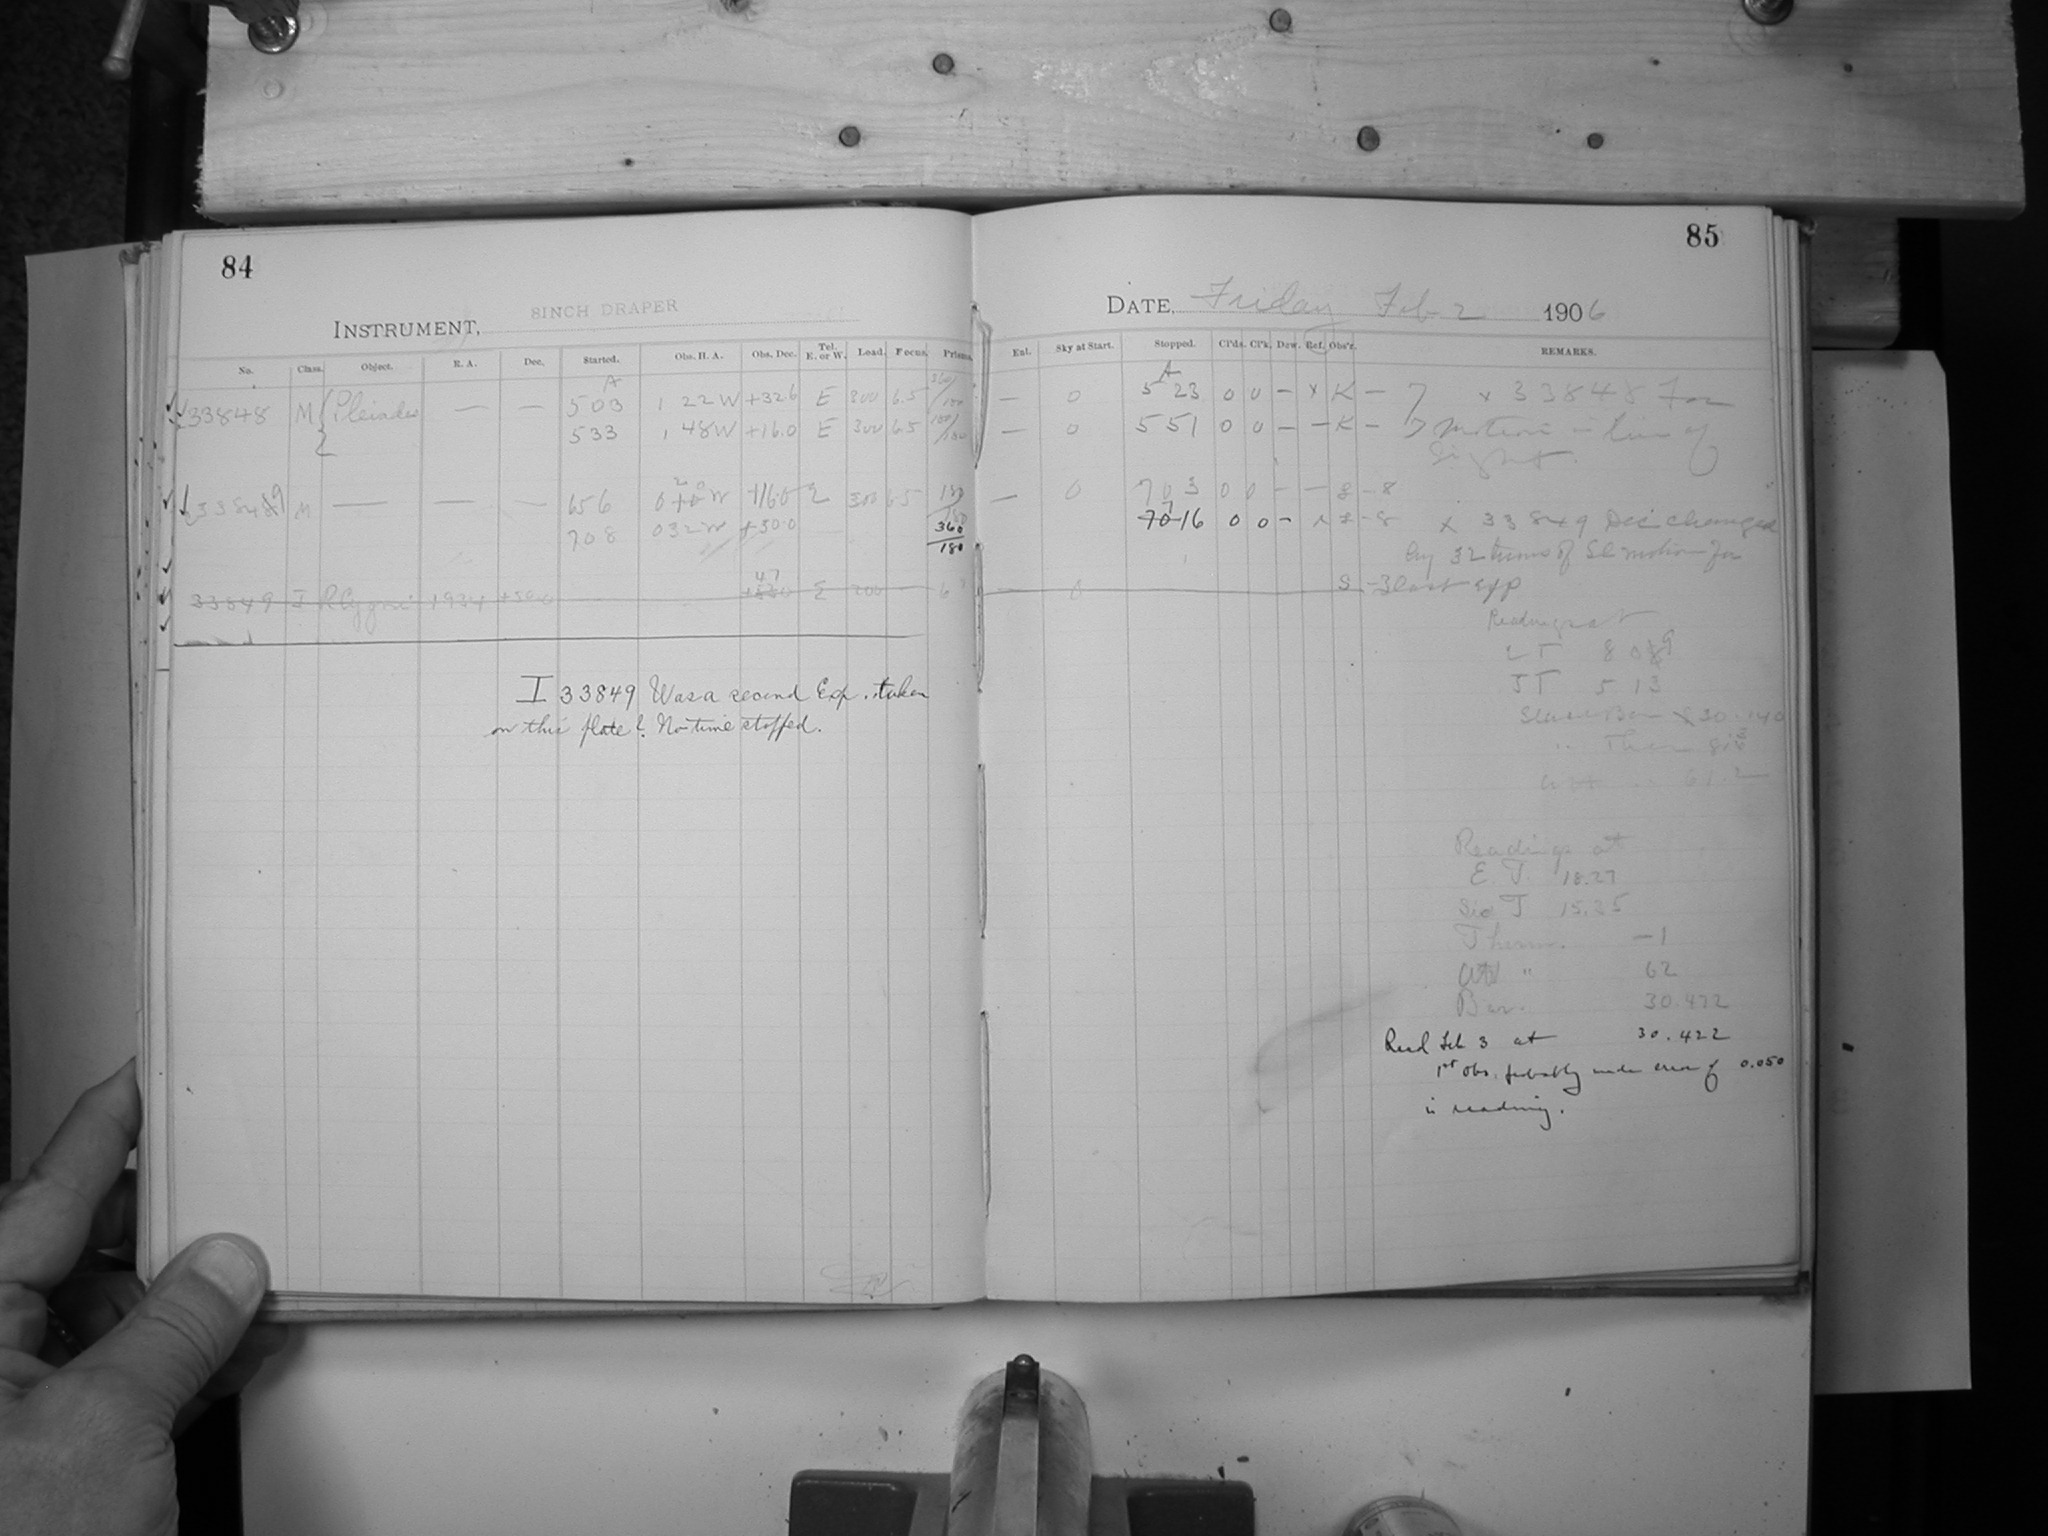 84
8INCH DRAPER
INSTRUMENT,
No. Class. Object. R. A. Dec. Started. Obs. H. A. Obs. Dec. Tel. E. or W. Load. Focus. Prisms.
33848 M Pleiades — — 503 1 22 W +32.6 E 300 6.5 360/180
533 1 48 W +16.0 E 300 6.5 180/180
33849 M — — — 656 +16.0 E 300 6.5 180/180
708 0 32 W +50.0 360/180
33849 I R Cygni 1934 +50.0 47 E 200
I 33849 Was a second Exp. taken
on this plate? No time stopped.
85
DATE, Friday Feb 2 1906
Enl. Sky at Start. Stopped. Cl'ds. Cl'k. Dew. Ref. Obs'r. REMARKS.
— 0 5 23 0 0 — x K — x 33848 For
— 0 551 0 0 — — K — Motion in line of
Sight.
— 0 7 03 0 0 — — 8 - 8
7 16 0 0 — 8 - 8 x 33849 Dec changed
by 32 turns of Sl motion for
— 0 S - 3 last exp
Readings at
ET 8 09
ST 5 13
30.140
Ther
61.2
Readings at
E. T. 18.27
Sid T 15.35
Therm. —1
Att " 62
Bar. 30.472
Read Feb 3 at 30.422
1st Obs. probably made error of 0.050
in reading.